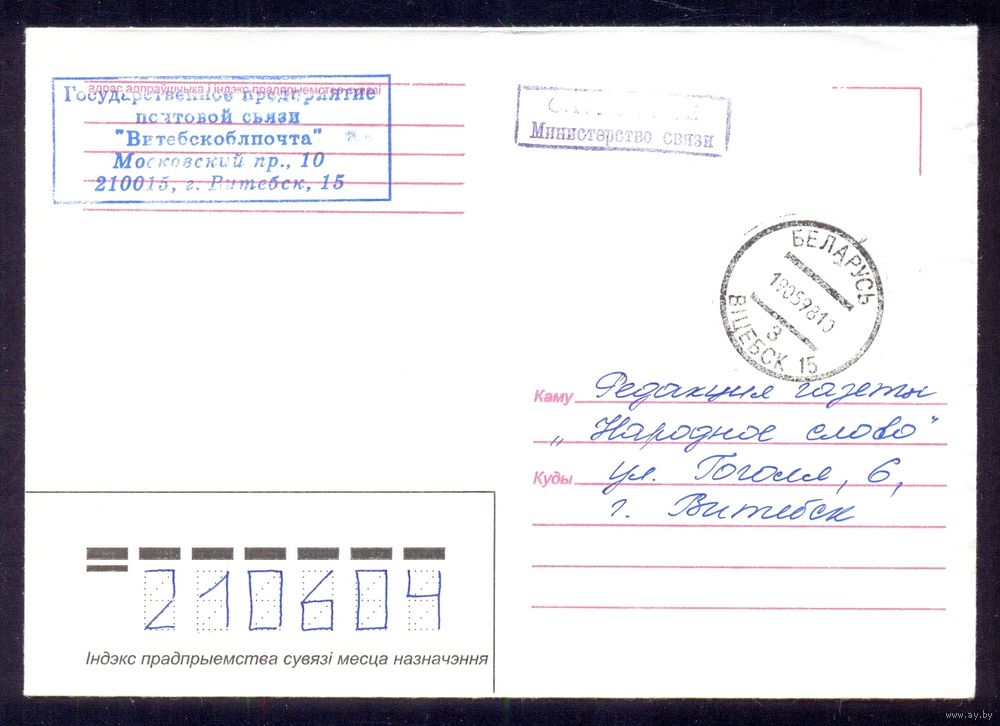 адрас адпраўшчыка і індэкс прадпрыемства сувязі
Государственное предприятие
почтовой связи
"Витебскоблпочта"
Московский пр., 10
210015, г. Витебск, 15
Министерство связи
БЕЛАРУСЬ
19059810
3
ВІЦЕБСК 15
Каму Редакция газеты
„Народное слово"
Куды ул. Гоголя, 6,
г. Витебск
210604
Індэкс прадпрыемства сувязі месца назначэння
www.ay.by